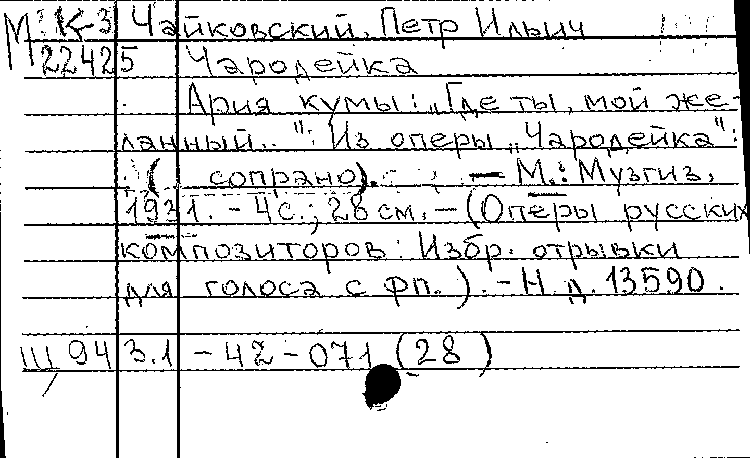 М: К-3 Чайковский, Петр Ильич
22425 Чародейка
Ария кумы: „Где ты, мой же-
ланный.." : Из оперы „Чародейка" :
( сопрано). - М.: Музгиз,
1931. - 4 с.; 28 см. - (Оперы русских
композиторов: Избр. отрывки
для голоса с фп.). - Н. д. 13590.
Щ 943.1 - 42 - 071 (28)